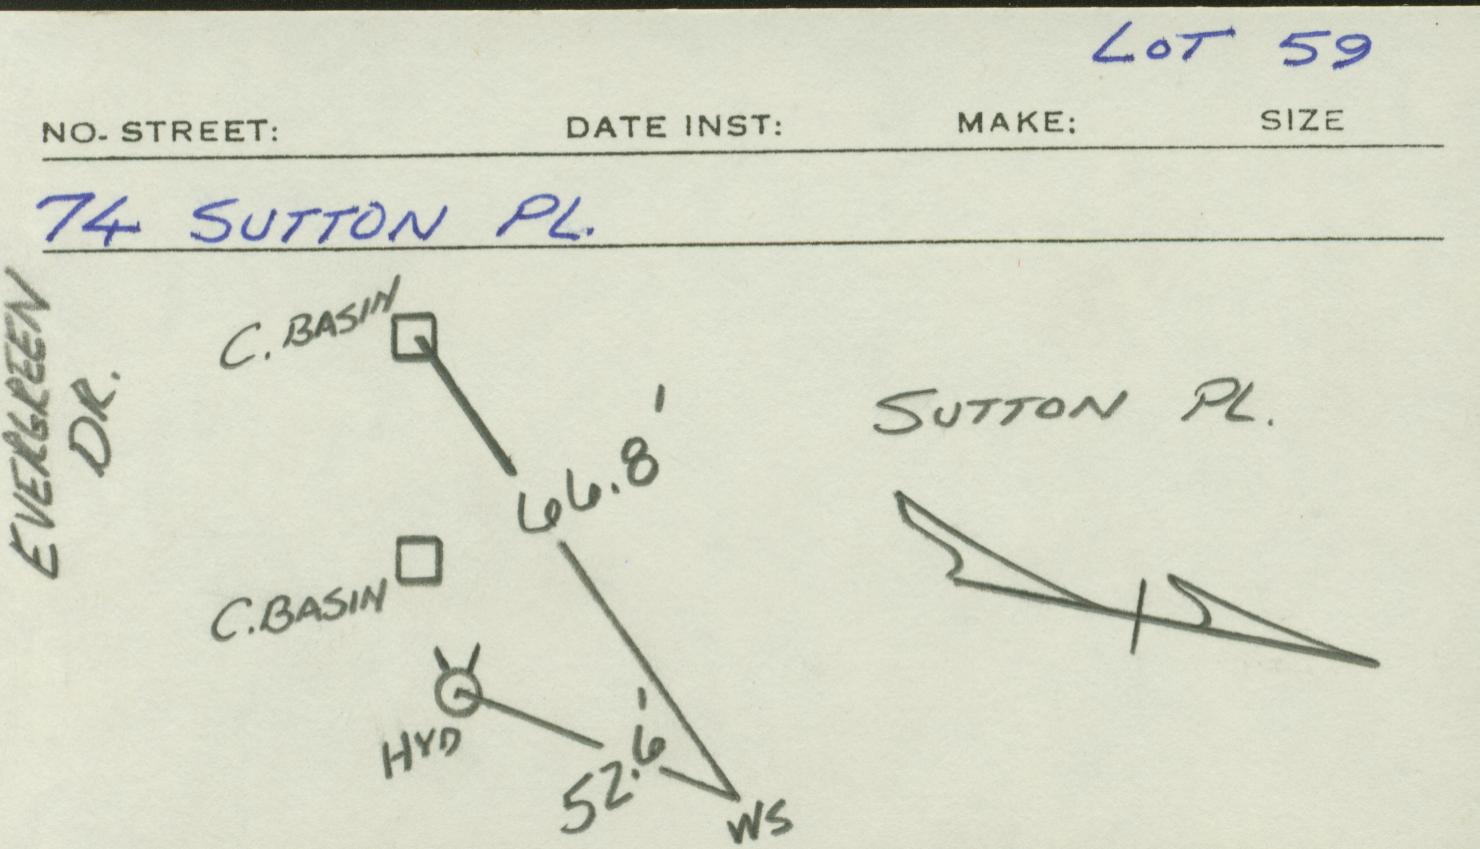 LOT 59
NO. STREET: DATE INST: MAKE: SIZE
74 SUTTON PL.
EVERGREEN
DR.
C. BASIN
66.8'
SUTTON PL.
C. BASIN
HYD
52.6'
WS